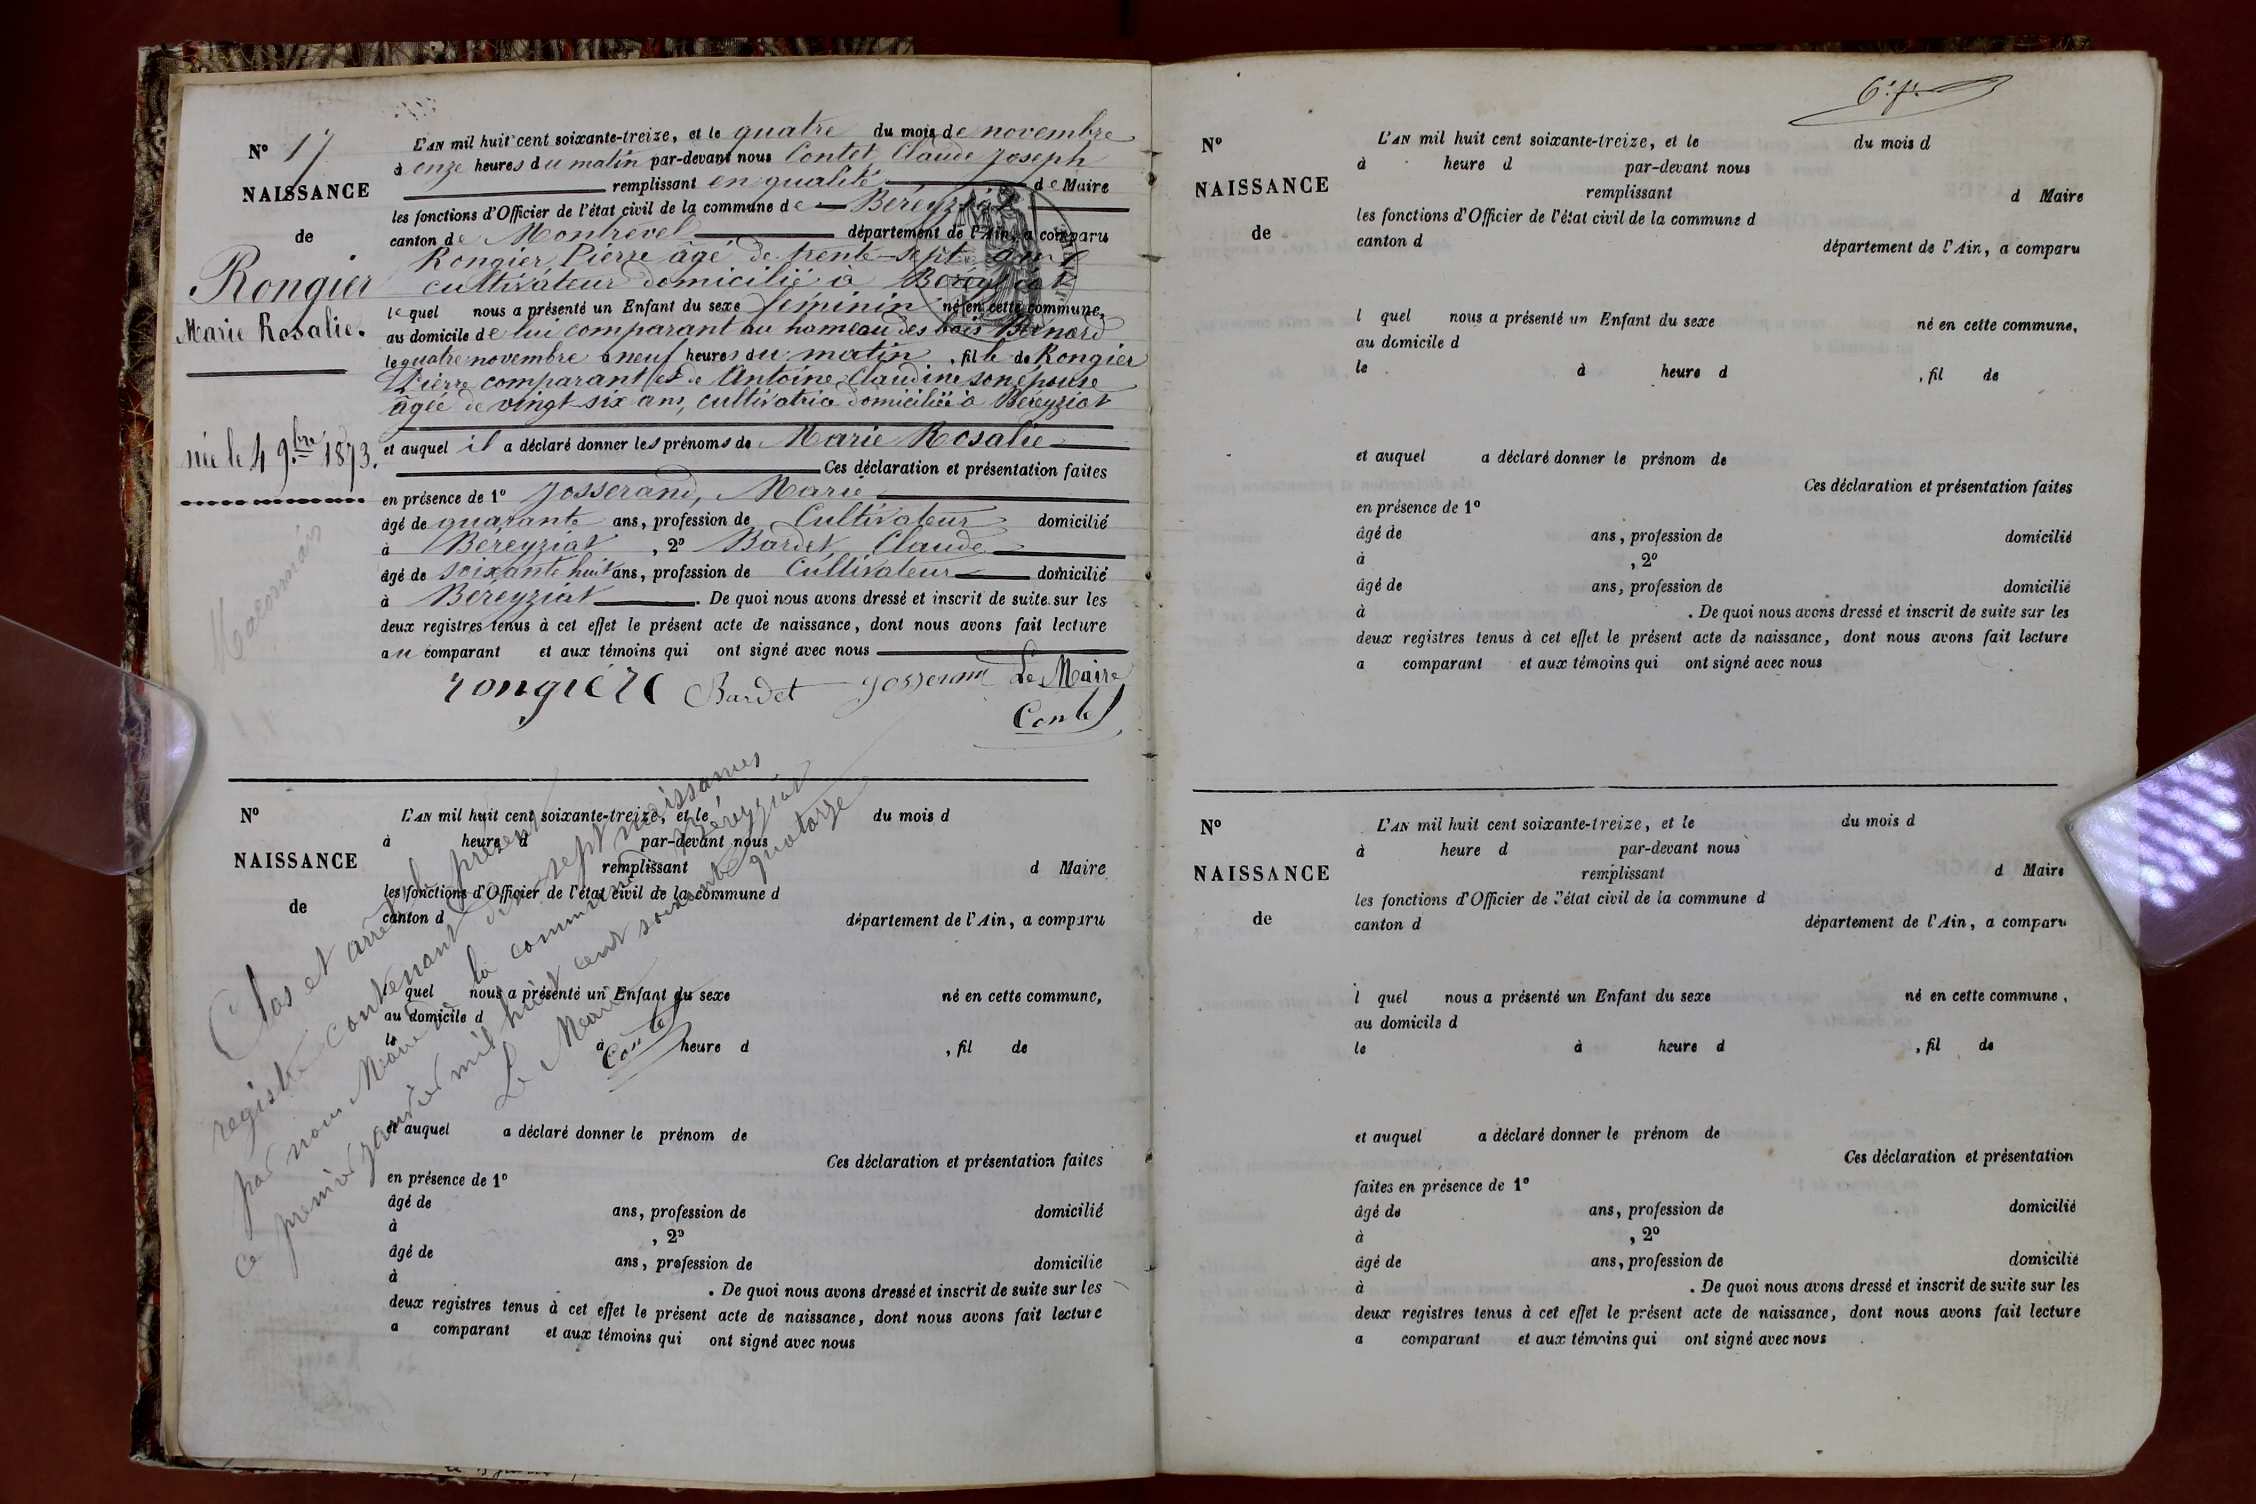 N° 17
NAISSANCE
de
Rongier
Marie Rosalie.
née le 4 9.bre 1873.
L'AN mil huit cent soixante-treize, et le quatre du mois de novembre
à onze heures du matin par-devant nous Contet, Claude Joseph
remplissant en qualité de Maire
les fonctions d'Officier de l'état civil de la commune de Béréyziat
canton de Montrevel département de l'Ain, a comparu
Rongier, Pierre âgé de trente-sept ans
cultivateur domicilié à Béréyziat
lequel nous a présenté un Enfant du sexe féminin né en cette commune,
au domicile de lui comparant au hameau des bois Bernard
le quatre novembre à neuf heures du matin, fille de Rongier
Pierre comparant et de Antoine, Claudine son épouse
âgée de vingt-six ans, cultivatrice domiciliée à Béréyziat
et auquel il a déclaré donner les prénoms de Marie Rosalie
Ces déclaration et présentation faites
en présence de 1° Josserand, Marie
âgé de quarante ans, profession de Cultivateur domicilié
à Béréyziat, 2° Bardet, Claude
âgé de soixante huit ans, profession de Cultivateur domicilié
à Béréyziat. De quoi nous avons dressé et inscrit de suite sur les
deux registres tenus à cet effet le présent acte de naissance, dont nous avons fait lecture
au comparant et aux témoins qui ont signé avec nous
rongiere Bardet Josserand Le Maire
Contet
N°
NAISSANCE
de
L'AN mil huit cent soixante-treize, et le du mois d
à heure d par-devant nous
remplissant d Maire
les fonctions d'Officier de l'état civil de la commune d
canton d département de l'Ain, a comparu
l quel nous a présenté un Enfant du sexe né en cette commune,
au domicile d
le à heure d , fil de
et auquel a déclaré donner le prénom de
Ces déclaration et présentation faites
en présence de 1°
âgé de ans, profession de domicilié
à , 2°
âgé de ans, profession de domicilié
à . De quoi nous avons dressé et inscrit de suite sur les
deux registres tenus à cet effet le présent acte de naissance, dont nous avons fait lecture
a comparant et aux témoins qui ont signé avec nous
Clos et arrêté le présent
registre contenant dix-sept naissances
par nous Maire de la commune de Béréyziat
ce premier janvier mil huit cent soixante quatorze
Le Maire
Contet
N°
NAISSANCE
de
L'AN mil huit cent soixante-treize, et le du mois d
à heure d par-devant nous
remplissant d Maire
les fonctions d'Officier de l'état civil de la commune d
canton d département de l'Ain, a comparu
l quel nous a présenté un Enfant du sexe né en cette commune,
au domicile d
le à heure d , fil de
et auquel a déclaré donner le prénom de
Ces déclaration et présentation faites
en présence de 1°
âgé de ans, profession de domicilié
à , 2°
âgé de ans, profession de domicilié
à . De quoi nous avons dressé et inscrit de suite sur les
deux registres tenus à cet effet le présent acte de naissance, dont nous avons fait lecture
a comparant et aux témoins qui ont signé avec nous
N°
NAISSANCE
de
L'AN mil huit cent soixante-treize, et le du mois d
à heure d par-devant nous
remplissant d Maire
les fonctions d'Officier de l'état civil de la commune d
canton d département de l'Ain, a comparu
l quel nous a présenté un Enfant du sexe né en cette commune,
au domicile d
le à heure d , fil de
et auquel a déclaré donner le prénom de
Ces déclaration et présentation
faites en présence de 1°
âgé de ans, profession de domicilié
à , 2°
âgé de ans, profession de domicilié
à . De quoi nous avons dressé et inscrit de suite sur les
deux registres tenus à cet effet le présent acte de naissance, dont nous avons fait lecture
a comparant et aux témoins qui ont signé avec nous